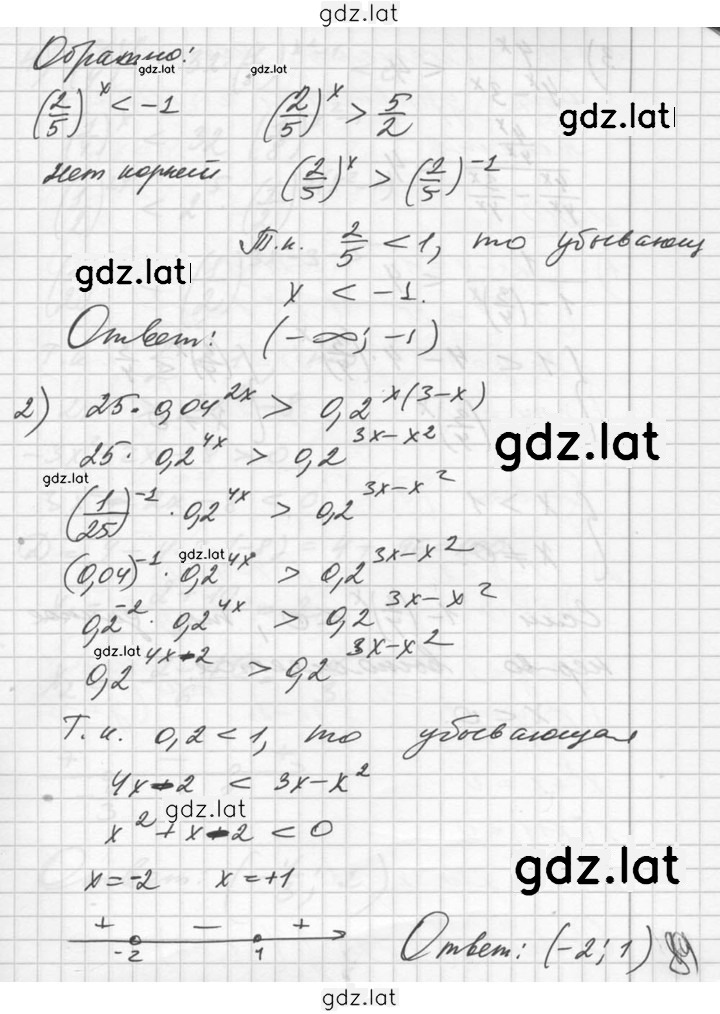 gdz.lat
Обратно:
gdz.lat gdz.lat
(2/5)^x < -1 (2/5)^x > 5/2 gdz.lat
Нет корней (2/5)^x > (2/5)^-1
Т.к. 2/5 < 1, то убывающ
gdz.lat x < -1.
Ответ: (-∞; -1)
2) 25 · 0,04^2x > 0,2^x(3-x)
25 · 0,2^4x > 0,2^3x-x^2 gdz.lat
gdz.lat
(1/25)^-1 · 0,2^4x > 0,2^3x-x^2
(0,04)^-1 · 0,2^4x > 0,2^3x-x^2 gdz.lat
0,2^-2 · 0,2^4x > 0,2^3x-x^2
gdz.lat
0,2^4x-2 > 0,2^3x-x^2
Т.к. 0,2 < 1, то убывающая
4x-2 < 3x-x^2
gdz.lat
x^2+x-2 < 0
x=-2 x=+1 gdz.lat
+ − +
-2 1
Ответ: (-2; 1)
gdz.lat